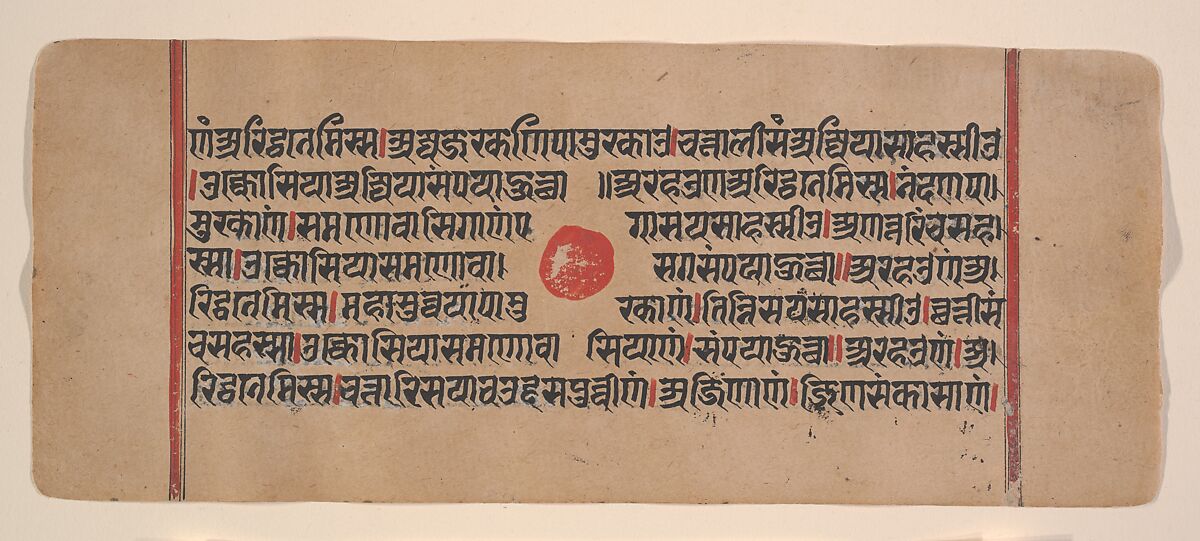 णं अरिट्ठनेमिस्स।अज्जजक्खिणिपामुक्खाउ।चत्तालीसं अज्जियासाहस्सीउ
।उक्कोसिया अज्जियासंपया हुत्था ॥अरहउ ण अरिट्ठनेमिस्स।नंदपा
मुक्खाणं।समणोवासगाणं ए गा सयसाहस्सीउ।अउणत्तरिं च सह
स्सा।उक्कोसिया समणोवा सगसंपया हुत्था॥अरहउ णं अ
रिट्ठनेमिस्स।महासुव्वयापामु क्खाणं।तिन्नि सयसाहस्सीउ।छत्तीसं
च सहस्सा।उक्कोसिया समणोवा सियाणं।संपया हुत्था॥अरहउ णं।अ
रिट्ठनेमिस्स।चत्तारि सया चउद्दसपुव्वीणं।अजिणाणं।जिणसंकासाणं।